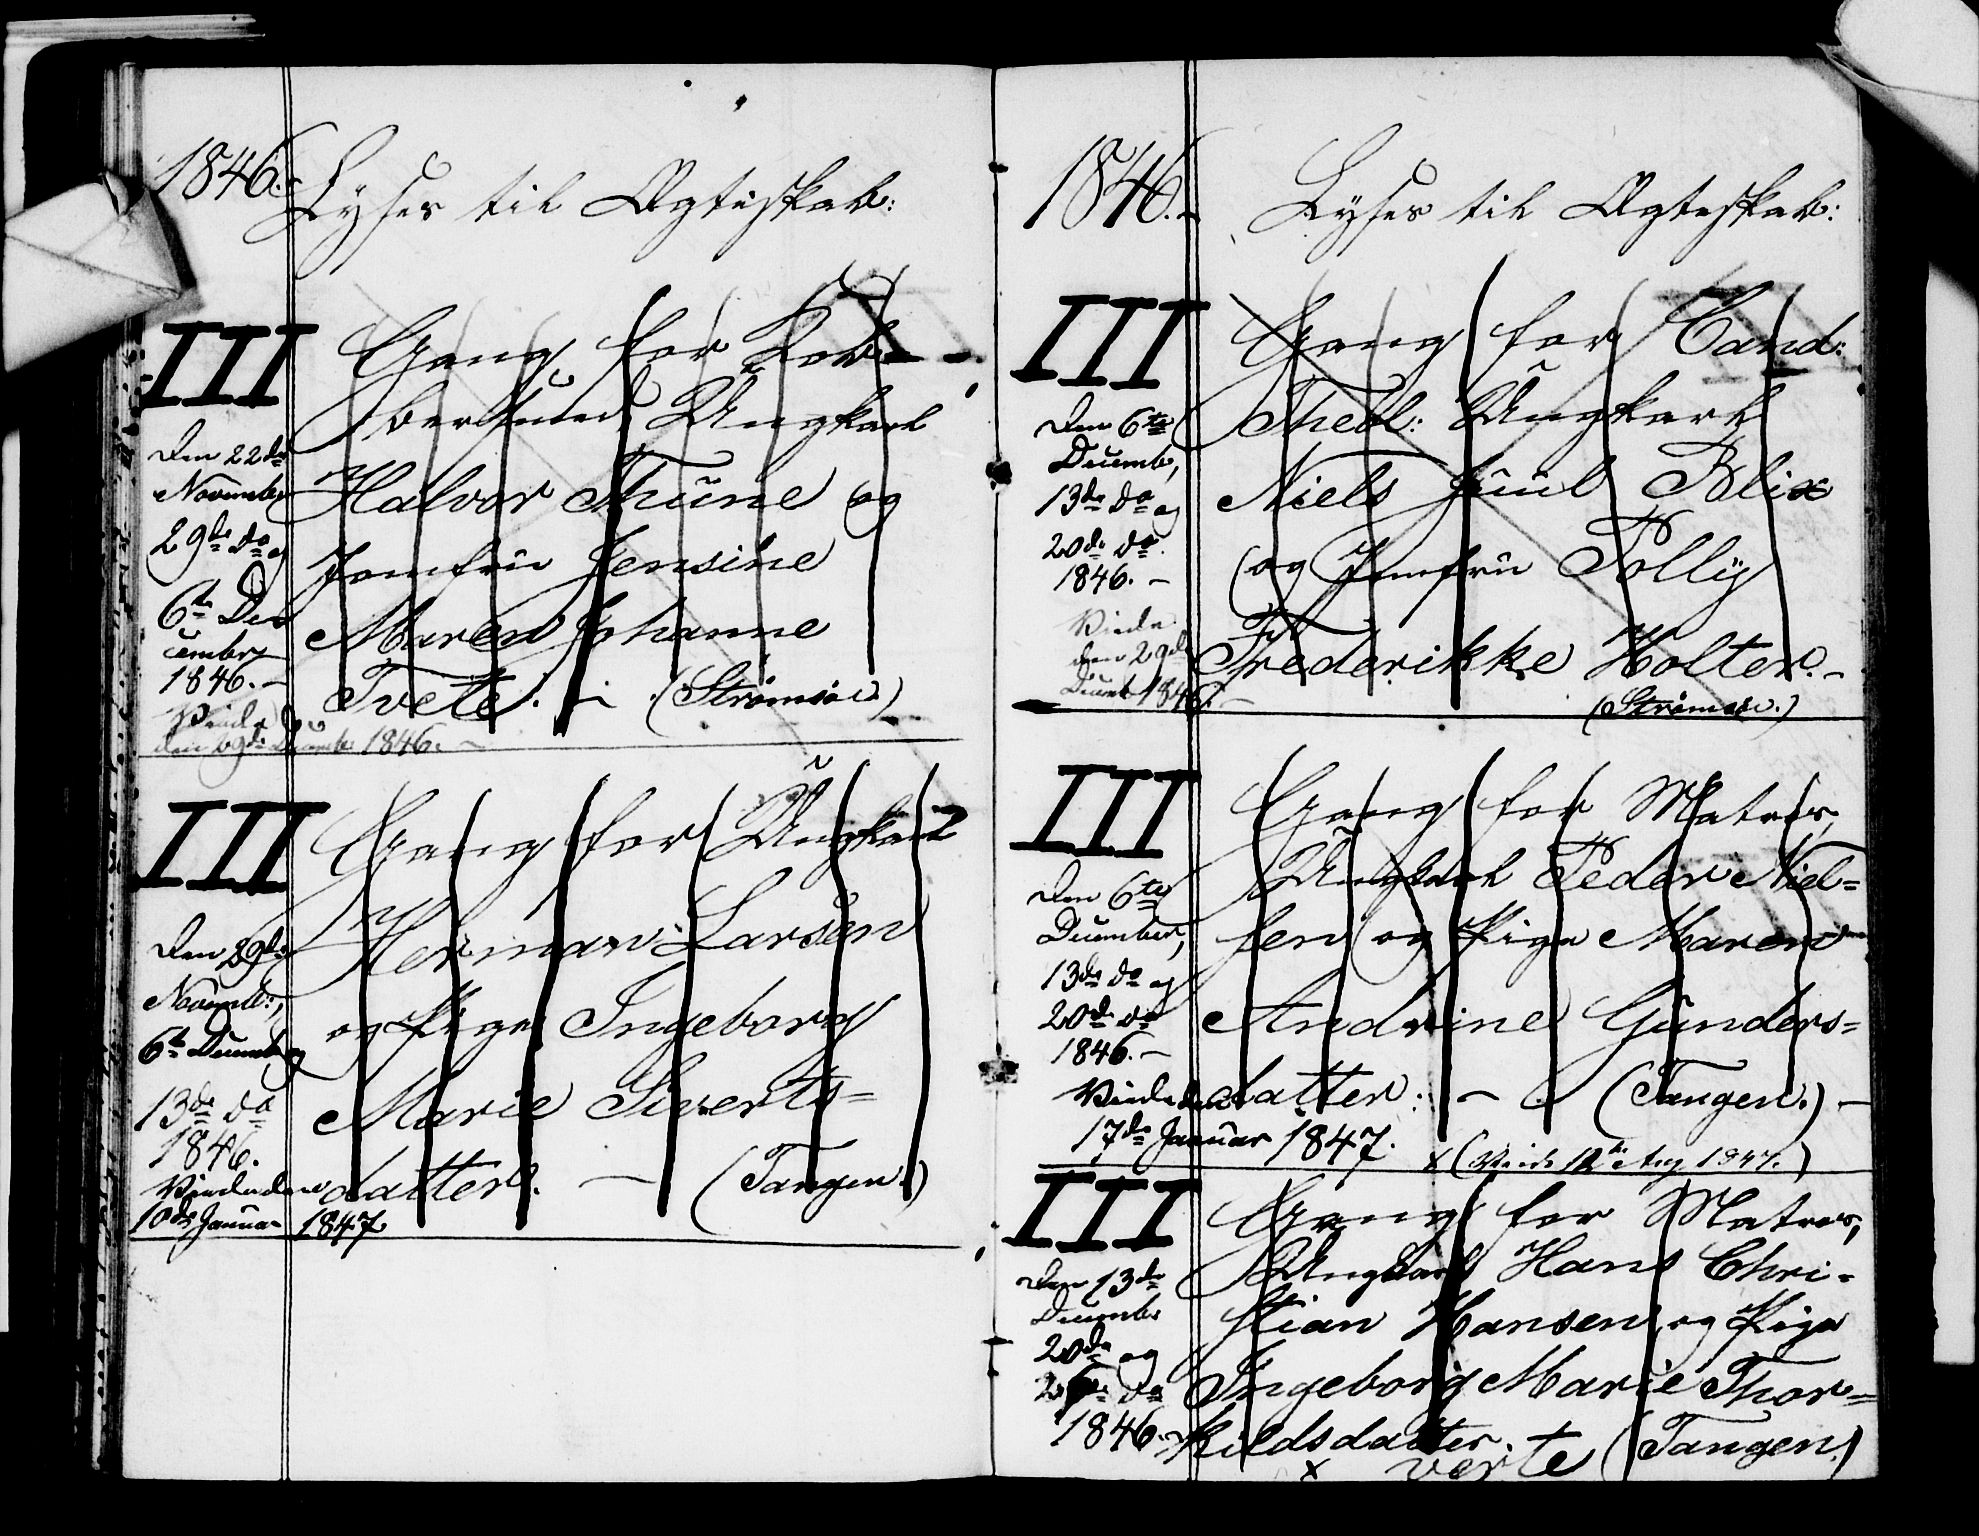 1846.
Lyses til Ægteskab:
III
Gang for Kob-
bersmed Ungkarl
Halvor Thune og
Jomfru Jensine
Maren Johanne
Tvete. — (Strømsøe.)
Den 22de
November
29de do og
6te De-
cember
1846. —
Viede
den 29de Decembr 1846. —
III
Gang for Ungkarl
Herman Larsen
og Pige Ingeborg
Marie Siverts=
datter. — (Tangen.)
Den 29de
Novemb:,
6te Decemb og
13de do
1846.
Viede den
10de Januar 1847
1846. -
Lyses til Ægteskab:
III
Gang for Cand:
Theol: Ungkarl
Niels Juul Blix
og Jomfru Polly
Frederikke Holter. -
(Strømsøe.)
Den 6te
Decemb,
13de do og
20de do.
1846. —
Viede
den 29de
Decemb 1846. —
III
Gang for Matros,
Ungkarl Peder Niel=
sen og Pige Maren
Andrine Gunders=
datter: — (Tangen.) —
Den 6te
December,
13de do og
20de do
1846. —
Viede den
17de Januar 1847.
x (Viede 12te Aug 1847.)
III
Gang for Matros,
Ungkarl Hans Chri=
stian Hansen og Pige
Ingeborg Marie Thor=
kildsdatter. (Tangen.)
Den 13de
Decembr
20de og
do
1846. -
x verte